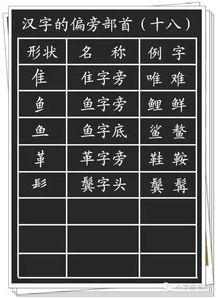 汉字的偏旁部首（十八）
形状 名 称 例 字
隹 隹字旁 唯 难
鱼 鱼字旁 鲤 鲜
鱼 鱼字底 鲨 鳌
革 革字旁 鞋 鞍
髟 鬓字头 鬓